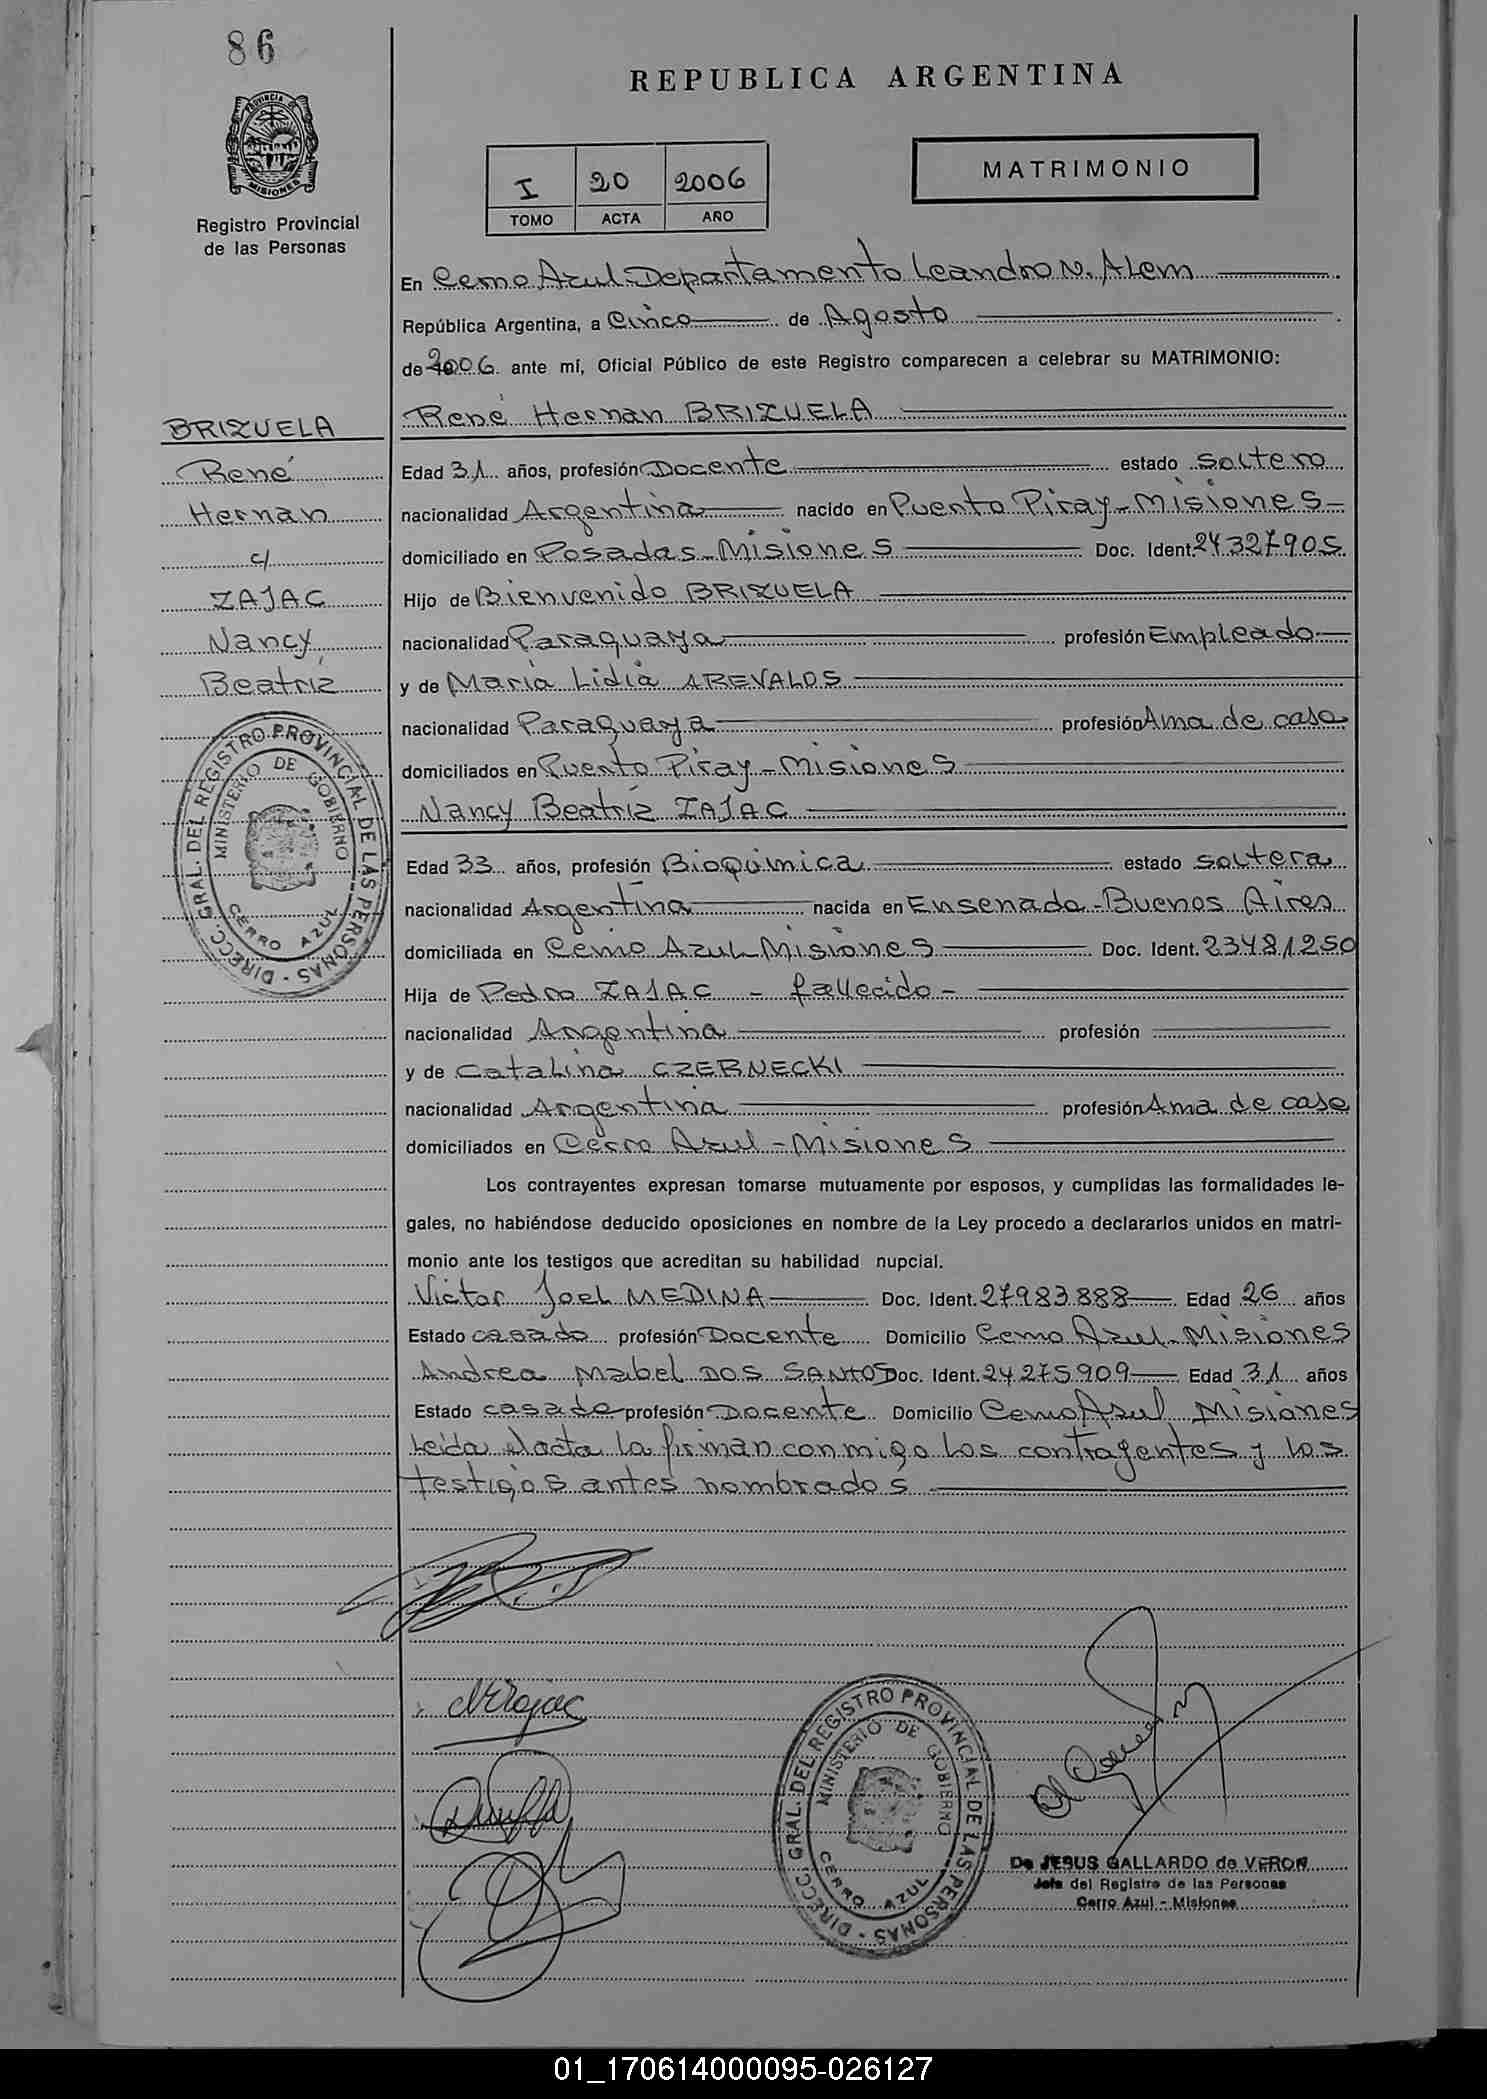 86
REPUBLICA ARGENTINA
PROVINCIA DE
MISIONES
Registro Provincial
de las Personas
I 20 2006
TOMO ACTA AÑO
MATRIMONIO
En Cerro Azul Departamento Leandro N. Alem
República Argentina, a Cinco de Agosto
de 2006 ante mí, Oficial Público de este Registro comparecen a celebrar su MATRIMONIO:
BRIZUELA
René
Hernan
c/
ZAJAC
Nancy
Beatríz
René Hernan BRIZUELA
Edad 31 años, profesión Docente estado Soltero
nacionalidad Argentina nacido en Puerto Piray-Misiones
domiciliado en Posadas-Misiones Doc. Ident. 24327905
Hijo de Bienvenido BRIZUELA
nacionalidad Paraguaya profesión Empleado
y de María Lidia AREVALOS
nacionalidad Paraguaya profesión Ama de casa
domiciliados en Puerto Piray-Misiones
Nancy Beatríz ZAJAC
Edad 33 años, profesión Bioquímica estado Soltera
nacionalidad Argentina nacida en Ensenada-Buenos Aires
domiciliada en Cerro Azul-Misiones Doc. Ident. 23481250
Hija de Pedro ZAJAC - fallecido -
nacionalidad Argentina profesión
y de Catalina CZERNECKI
nacionalidad Argentina profesión Ama de casa
domiciliados en Cerro Azul-Misiones
Los contrayentes expresan tomarse mutuamente por esposos, y cumplidas las formalidades le-
gales, no habiéndose deducido oposiciones en nombre de la Ley procedo a declararlos unidos en matri-
monio ante los testigos que acreditan su habilidad nupcial.
Victor Joel MEDINA Doc. Ident. 27983888 Edad 26 años
Estado casado profesión Docente Domicilio Cerro Azul-Misiones
Andrea Mabel DOS SANTOS Doc. Ident. 24275909 Edad 31 años
Estado casada profesión Docente Domicilio Cerro Azul Misiones
Leída el acta la firman conmigo los contrayentes y los
testigos antes nombrados
DIRECC. GRAL. DEL REGISTRO PROVINCIAL DE LAS PERSONAS -
MINISTERIO DE GOBIERNO
CERRO AZUL
NBZajac
DIRECC. GRAL. DEL REGISTRO PROVINCIAL DE LAS PERSONAS -
MINISTERIO DE GOBIERNO
CERRO AZUL
De JESUS GALLARDO de VERON
Jefe del Registro de las Personas
Cerro Azul - Misiones
01_170614000095-026127